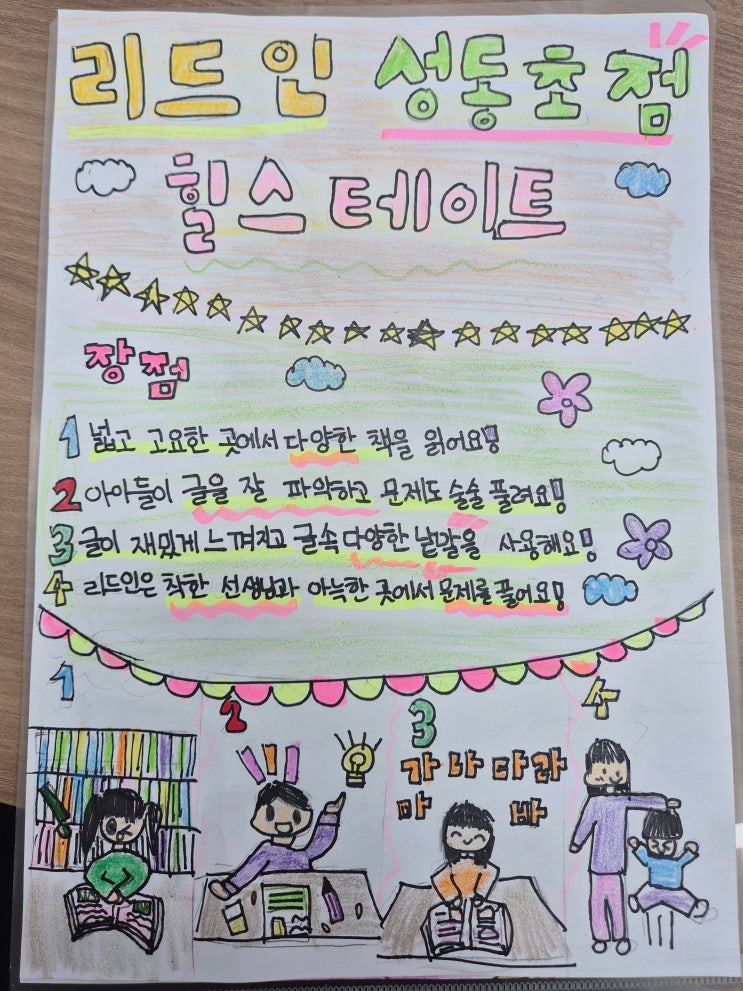 리드인 성동초점
힐스테이트
장점
1 넓고 고요한 곳에서 다양한 책을 읽어요!
2 아아들이 글을 잘 파악하고 문제도 술술 풀려요!
3 글이 재밌게 느껴지고 글속 다양한 낱말을 사용해요!
4 리드인은 착한 선생님과 아늑한 곳에서 문제를 풀어요!
1
2
3
4
가 나 다 라
마 바